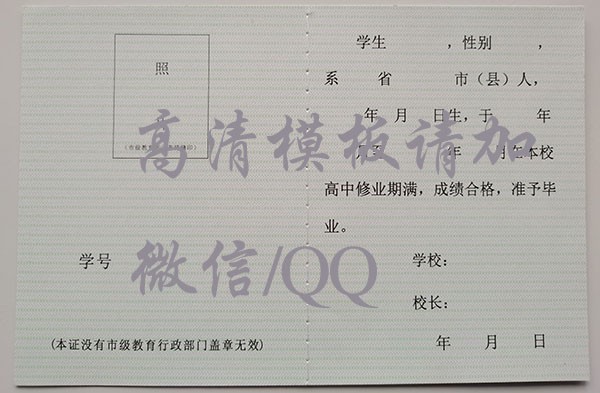 照
(市级教育
印)
学号
(本证没有市级教育行政部门盖章无效)
学生 ,性别 ,
系 省 市(县)人,
年 月 日生,于 年
月至 年 月在本校
高中修业期满,成绩合格,准予毕
业。
学校:
校长:
年 月 日
高清模板请加
微信/QQ